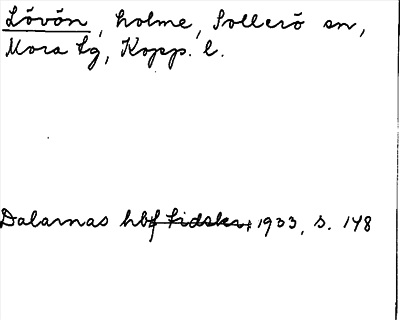 Lövön, holme, Sollerö sn,
Mora tg, Kopp. l.
Dalarnas hbf tidskr, 1933, s. 148